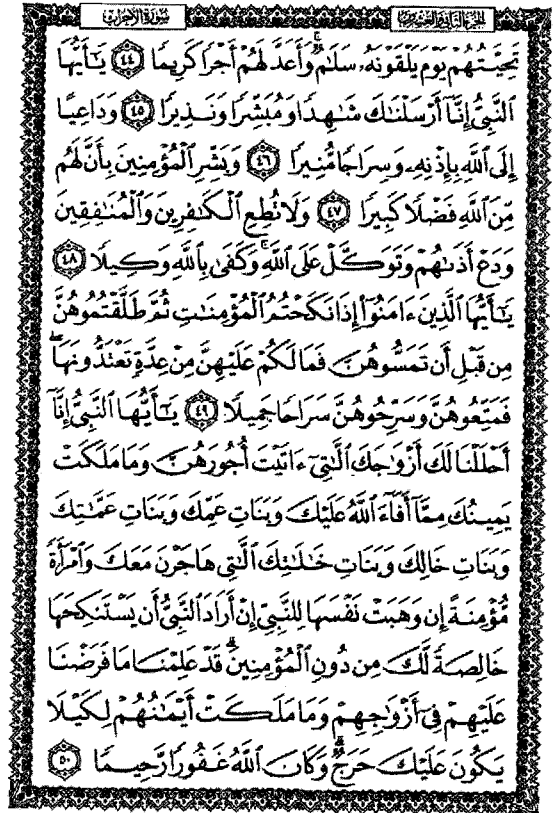 الجزء الثاني والعشرون سورة الأحزاب
تَحِيَّتُهُمْ يَوْمَ يَلْقَوْنَهُۥ سَلَٰمٌ ۚ وَأَعَدَّ لَهُمْ أَجْرًا كَرِيمًا ٤٤ يَٰٓأَيُّهَا
ٱلنَّبِىُّ إِنَّآ أَرْسَلْنَٰكَ شَٰهِدًا وَمُبَشِّرًا وَنَذِيرًا ٤٥ وَدَاعِيًا
إِلَى ٱللَّهِ بِإِذْنِهِۦ وَسِرَاجًا مُّنِيرًا ٤٦ وَبَشِّرِ ٱلْمُؤْمِنِينَ بِأَنَّ لَهُم
مِّنَ ٱللَّهِ فَضْلًا كَبِيرًا ٤٧ وَلَا تُطِعِ ٱلْكَٰفِرِينَ وَٱلْمُنَٰفِقِينَ
وَدَعْ أَذَىٰهُمْ وَتَوَكَّلْ عَلَى ٱللَّهِ ۚ وَكَفَىٰ بِٱللَّهِ وَكِيلًا ٤٨
يَٰٓأَيُّهَا ٱلَّذِينَ ءَامَنُوٓا۟ إِذَا نَكَحْتُمُ ٱلْمُؤْمِنَٰتِ ثُمَّ طَلَّقْتُمُوهُنَّ
مِن قَبْلِ أَن تَمَسُّوهُنَّ فَمَا لَكُمْ عَلَيْهِنَّ مِنْ عِدَّةٍ تَعْتَدُّونَهَا ۖ
فَمَتِّعُوهُنَّ وَسَرِّحُوهُنَّ سَرَاحًا جَمِيلًا ٤٩ يَٰٓأَيُّهَا ٱلنَّبِىُّ إِنَّآ
أَحْلَلْنَا لَكَ أَزْوَٰجَكَ ٱلَّٰتِىٓ ءَاتَيْتَ أُجُورَهُنَّ وَمَا مَلَكَتْ
يَمِينُكَ مِمَّآ أَفَآءَ ٱللَّهُ عَلَيْكَ وَبَنَاتِ عَمِّكَ وَبَنَاتِ عَمَّٰتِكَ
وَبَنَاتِ خَالِكَ وَبَنَاتِ خَٰلَٰتِكَ ٱلَّٰتِى هَاجَرْنَ مَعَكَ وَٱمْرَأَةً
مُّؤْمِنَةً إِن وَهَبَتْ نَفْسَهَا لِلنَّبِىِّ إِنْ أَرَادَ ٱلنَّبِىُّ أَن يَسْتَنكِحَهَا
خَالِصَةً لَّكَ مِن دُونِ ٱلْمُؤْمِنِينَ ۗ قَدْ عَلِمْنَا مَا فَرَضْنَا
عَلَيْهِمْ فِىٓ أَزْوَٰجِهِمْ وَمَا مَلَكَتْ أَيْمَٰنُهُمْ لِكَيْلَا
يَكُونَ عَلَيْكَ حَرَجٌ ۗ وَكَانَ ٱللَّهُ غَفُورًا رَّحِيمًا ٥٠